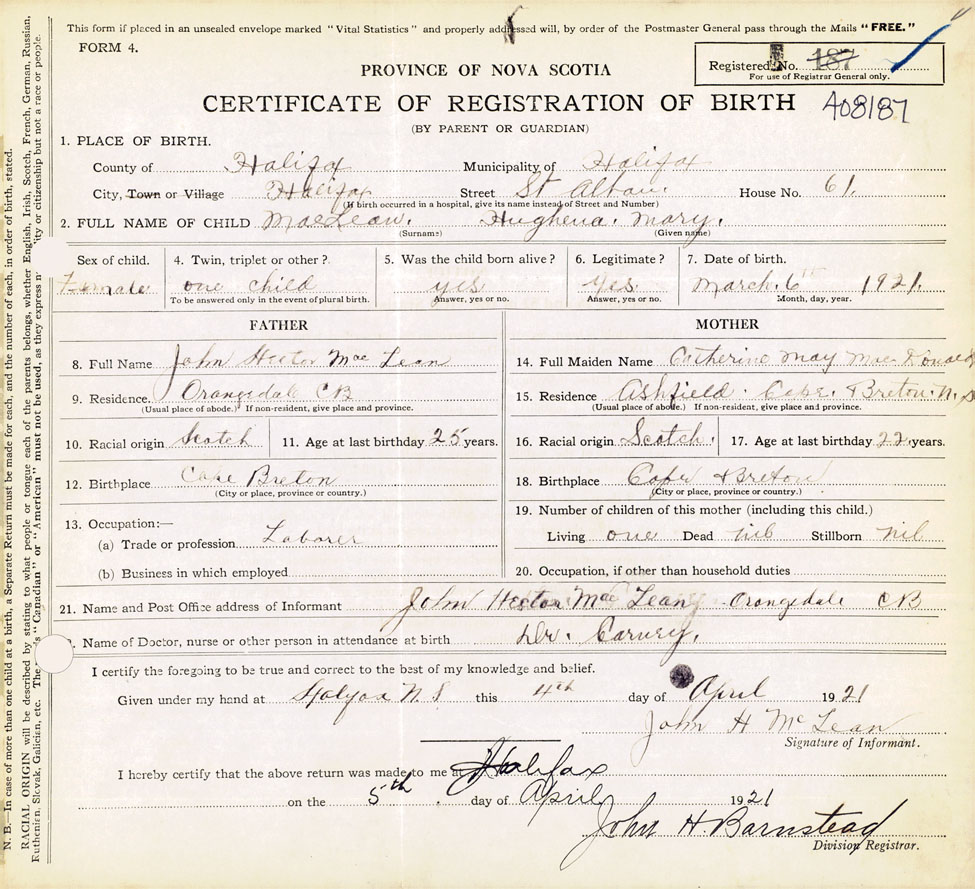 This form if placed in an unsealed envelope marked "Vital Statistics" and properly addressed will, by order of the Postmaster General pass through the Mails "FREE."
FORM 4.
Registered No. 187
For use of Registrar General only.
PROVINCE OF NOVA SCOTIA
CERTIFICATE OF REGISTRATION OF BIRTH 408187
(BY PARENT OR GUARDIAN)
1. PLACE OF BIRTH.
County of Halifax Municipality of Halifax
City, Town or Village Halifax Street St Alban. House No. 61.
(If birth occurred in a hospital, give its name instead of Street and Number)
2. FULL NAME OF CHILD MacLean. Hughena. Mary.
(Surname) (Given name)
Sex of child. 4. Twin, triplet or other ? 5. Was the child born alive ? 6. Legitimate ? 7. Date of birth.
Female one child yes Yes March. 6th 1921.
To be answered only in the event of plural birth. Answer, yes or no. Answer, yes or no. Month, day, year.
FATHER
8. Full Name John Hector Mac Lean
9. Residence. Orangedale CB
(Usual place of abode.) If non-resident, give place and province.
10. Racial origin Scotch 11. Age at last birthday 25 years.
12. Birthplace Cape Breton
(City or place, province or country.)
13. Occupation:—
(a) Trade or profession Laborer
(b) Business in which employed
MOTHER
14. Full Maiden Name Catherine May MacDonald
15. Residence Ashfield. Cape. Breton. N.S
(Usual place of abode.) If non-resident, give place and province.
16. Racial origin Scotch. 17. Age at last birthday 22 years.
18. Birthplace Cape Breton
(City or place, province or country.)
19. Number of children of this mother (including this child.)
Living one Dead nil Stillborn nil
20. Occupation, if other than household duties
21. Name and Post Office address of Informant John Hector Mac Lean Orangedale CB
Name of Doctor, nurse or other person in attendance at birth Dr. Carney.
I certify the foregoing to be true and correct to the best of my knowledge and belief.
Given under my hand at Halifax N.S this 4th day of April 1921
John H McLean
Signature of Informant.
I hereby certify that the above return was made to me at Halifax
on the 5th day of April 1921
John H Barnstead
Division Registrar.
N. B.—In case of more than one child at a birth, a Separate Return must be made for each, and the number of each, in order of birth, stated.
RACIAL ORIGIN will be described by stating to what people or tongue each of the parents belongs, whether English, Irish, Scotch, French, German, Russian,
Ruthenian, Slovak, Galician, etc. The "Canadian" or "American" must not be used, as they express or citizenship but not a race or people.